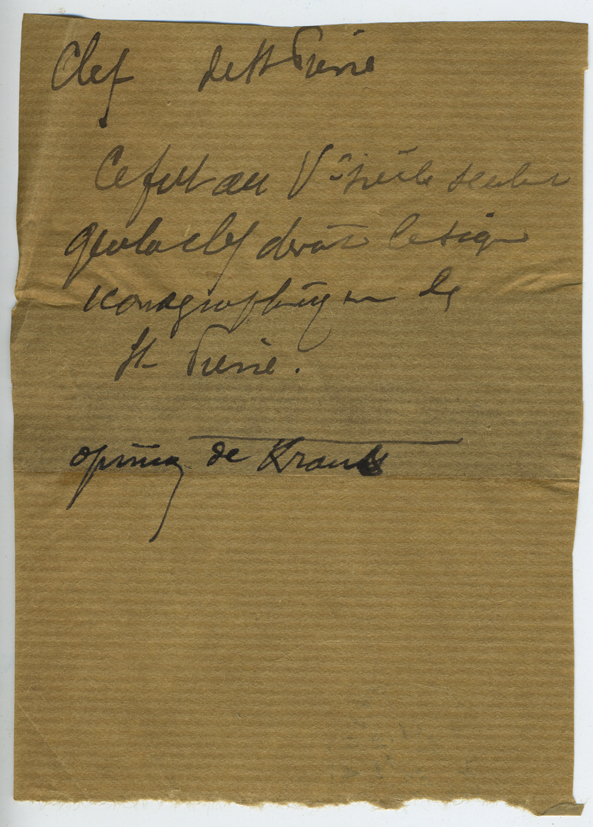 Clef de St Pierre
Ce fut au Ve siècle seulem
que la clef devint le signe
iconographique de
St Pierre.
opinion de Kraus